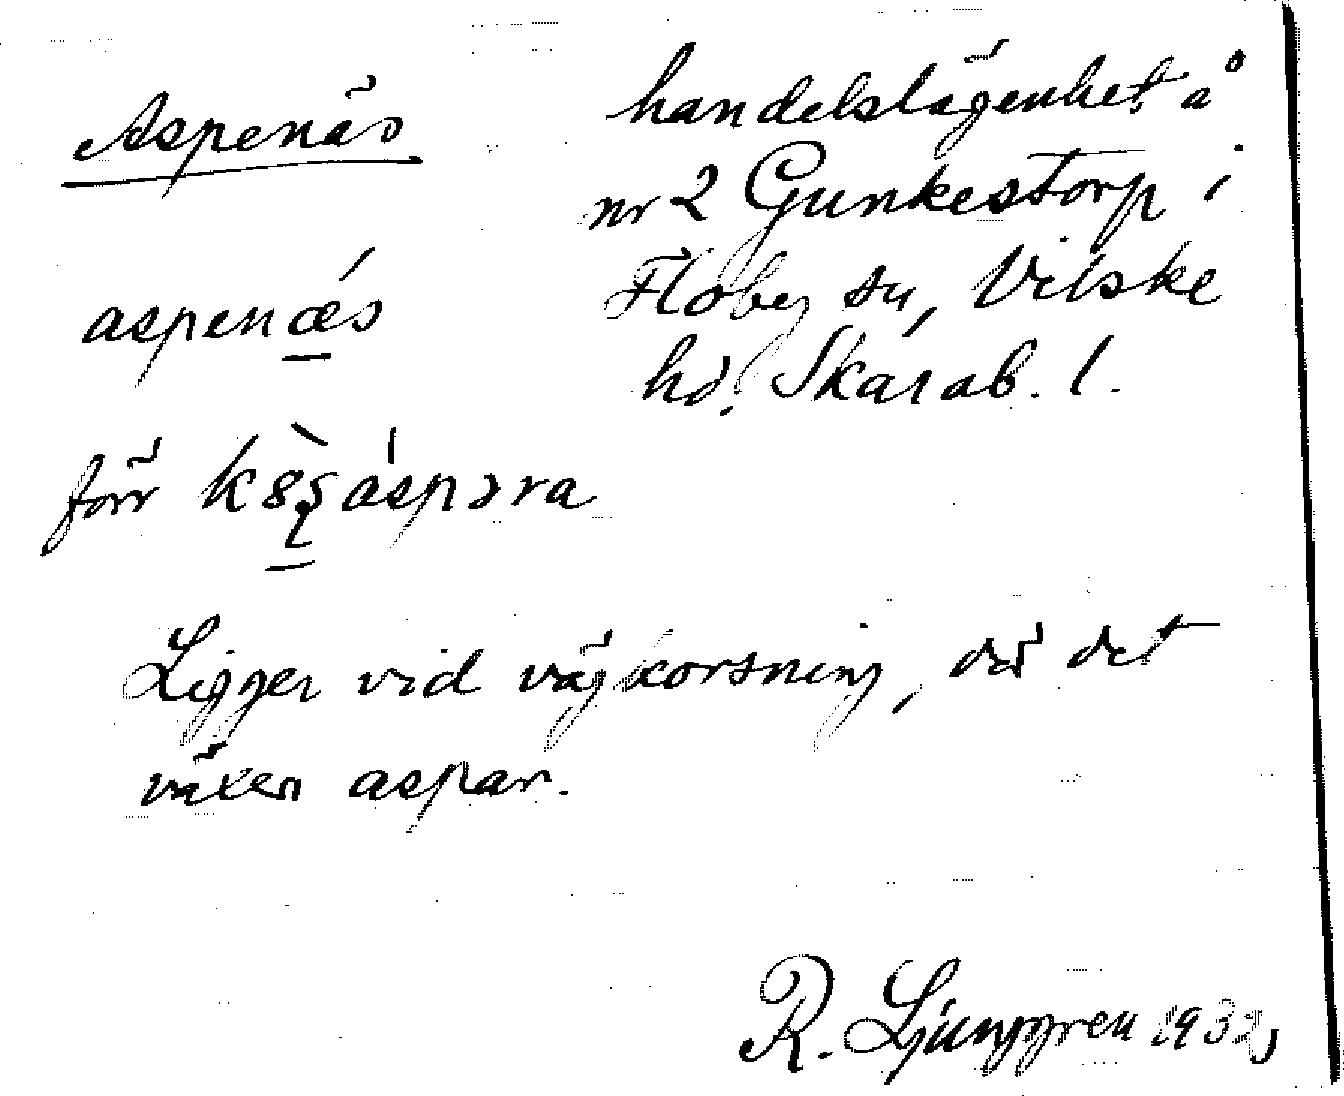 Aspenäs
handelslägenhet å
nr 2 Gunkestorp i
Floby sn, Vilske
hd. Skarab. l.
aspenǽs
förr
Ligger vid vägkorsning, där det
växer aspar.
R. Ljunggren 1932